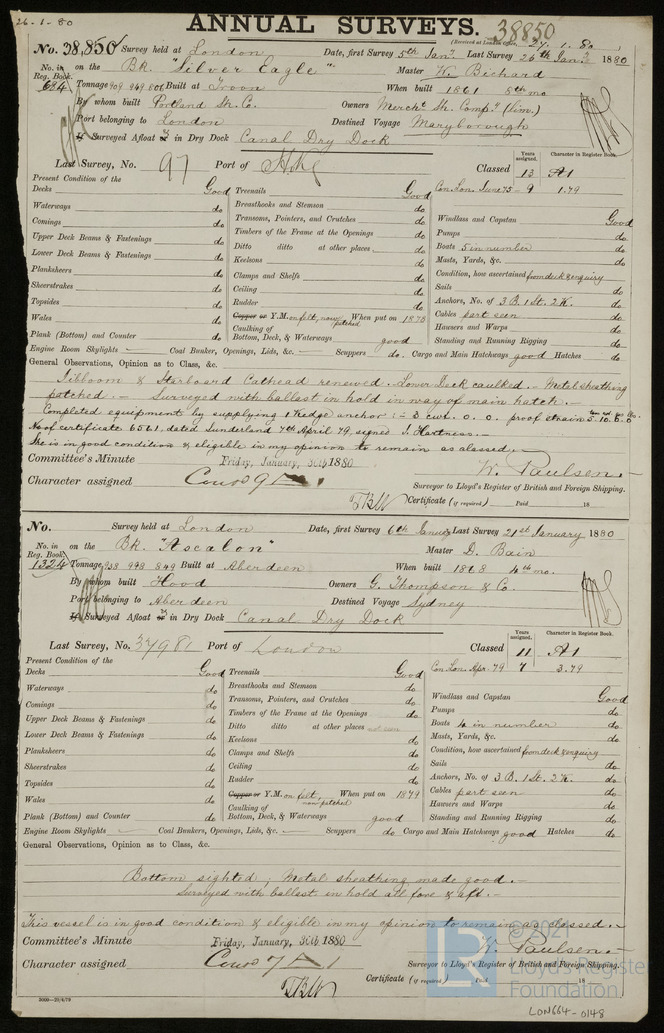 26-1-80
ANNUAL SURVEYS.
38850
(Received at London Office, 27.1.80)
No. 38,850 Survey held at London Date, first Survey 5th Jany Last Survey 26th Jany 1880
No. in Reg. Book. 684 on the Bk. "Silver Eagle" Master W. Bichard
Tonnage 909 949 806 Built at Troon When built 1861 5th mo
By whom built Portland Sh. Co. Owners Mercht Sh. Compy (Lim.)
Port belonging to London Destined Voyage Maryborough
If Surveyed Afloat or in Dry Dock Canal Dry Dock
Last Survey, No. 97 Port of
Classed Years assigned. 13 Character in Register Book. A1
Con. Lon. June 75 - 9 1.79
Present Condition of the
Decks Good Treenails Good
Waterways do Breasthooks and Stemson do Windlass and Capstan Good
Comings do Transoms, Pointers, and Crutches do Pumps do
Upper Deck Beams & Fastenings do Timbers of the Frame at the Openings do Boats 5 in number do
Lower Deck Beams & Fastenings do Ditto ditto at other places do Masts, Yards, &c. do
Planksheers do Keelsons do Condition, how ascertained from deck & enquiry
Sheerstrakes do Clamps and Shelfs do Sails do
Topsides do Ceiling do Anchors, No. of 3 B. 1 St. 2 K. do
Wales do Rudder do Cables part seen do
Copper or Y.M. on felt, now patched When put on 1878 Hawsers and Warps do
Plank (Bottom) and Counter do Caulking of Bottom, Deck, & Waterways good Standing and Running Rigging do
Engine Room Skylights — Coal Bunker, Openings, Lids, &c. — Scuppers do. Cargo and Main Hatchways good Hatches do
General Observations, Opinion as to Class, &c.
Jibboom & Starboard Cathead renewed. Lower Deck caulked. - Metal sheathing
patched. - Surveyed with ballast in hold in way of main hatch. -
Completed equipment by supplying 1 Kedge anchor := 3 cwt. 0. 0. proof strain 5. 10. 0. 0
No of certificate 6561, dated Sunderland 7th April 79, signed J. Hartness. -
She is in good condition & eligible in my opinion to remain as classed. -
Committee's Minute Friday, January, 30th 1880 W. Paulsen. -
Character assigned Cont 9 A 1 Surveyor to Lloyd's Register of British and Foreign Shipping.
Certificate (if required) Paid 18
No. Survey held at London Date, first Survey 6th January Last Survey 21st January 1880
No. in Reg. Book 1324 on the Bk. "Ascalon" Master D. Bain
Tonnage 938 993 849 Built at Aberdeen When built 1868 4th mo.
By whom built Hood Owners G. Thompson & Co.
Port belonging to Aberdeen Destined Voyage Sydney
If Surveyed Afloat or in Dry Dock Canal Dry Dock
Last Survey, No. 37981 Port of London
Classed Years assigned. 11 Character in Register Book. A1
Con. Lon. Apr. 79 7 3.79
Present Condition of the
Decks Good Treenails Good
Waterways do Breasthooks and Stemson do Windlass and Capstan Good
Comings do Transoms, Pointers, and Crutches do Pumps do
Upper Deck Beams & Fastenings do Timbers of the Frame at the Openings do Boats 4 in number do
Lower Deck Beams & Fastenings do Ditto ditto at other places not seen Masts, Yards, &c. do
Planksheers do Keelsons do Condition, how ascertained from deck & enquiry
Sheerstrakes do Clamps and Shelfs do Sails do
Topsides do Ceiling do Anchors, No. of 3 B. 1 St. 2 K. do
Wales do Rudder do Cables part seen do
Copper or Y.M. on felt, now patched When put on 1879 Hawsers and Warps do
Plank (Bottom) and Counter do Caulking of Bottom, Deck, & Waterways good Standing and Running Rigging do
Engine Room Skylights — Coal Bunkers, Openings, Lids, &c. — Scuppers do Cargo and Main Hatchways good Hatches do
General Observations, Opinion as to Class, &c.
Bottom sighted, Metal sheathing made good. -
Surveyed with ballast in hold all fore & aft. -
This vessel is in good condition & eligible in my opinion to remain as classed. -
Committee's Minute Friday, January, 30th 1880 W. Paulsen. -
Character assigned Cont 7 A 1 Surveyor to Lloyd's Register of British and Foreign Shipping.
Certificate (if required) Paid 18
3000-29/4/79
© 2021
LR
Lloyd's Register
Foundation
LON664-0148